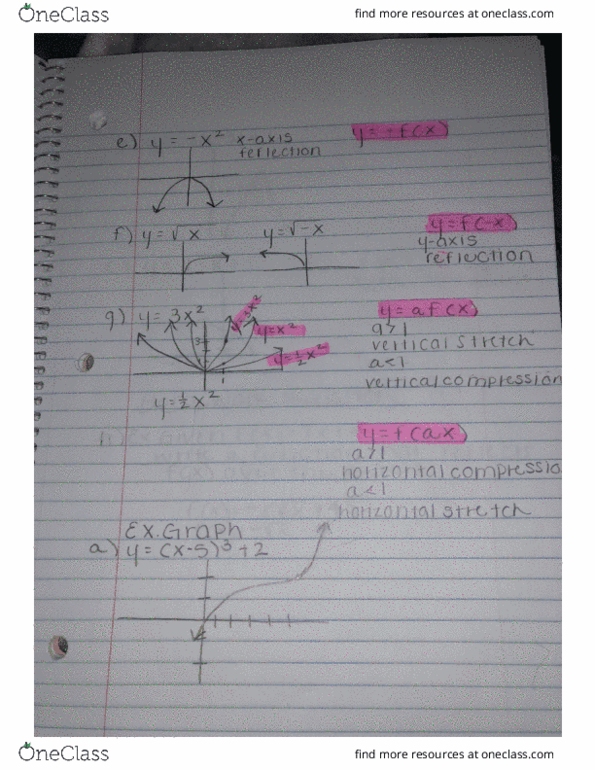 OneClass
find more resources at oneclass.com
e) y = -x² x-axis reflection
y = -f(x)
f) y = √x y = √-x
y = f(-x)
y-axis
reflection
g) y = 3x²
y = 3x²
y = x²
y = ½x²
y = ½x²
y = af(x)
a>1
vertical stretch
a<1
vertical compression
y = f(ax)
a>1
horizontal compressio
a<1
horizontal stretch
Ex. Graph
a) y = (x-5)³ + 2
OneClass
find more resources at oneclass.com